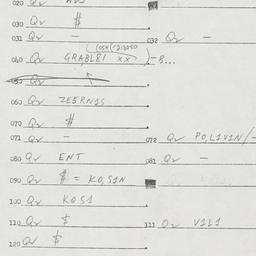 020 Qv
030 Qv $
031 Qv - 032 Qv -
040 Qv GRABL81 XX
050 Qv
060 Qv ZE5RN1S
070 Qv $
071 Qv - 072 Qv PO,L1V1N/-
080 Qv ENT 081 Qv -
090 Qv $ = KO,S1N
100 Qv KOS1
110 Qv $ 111 Qv V1L1
120 Qv $